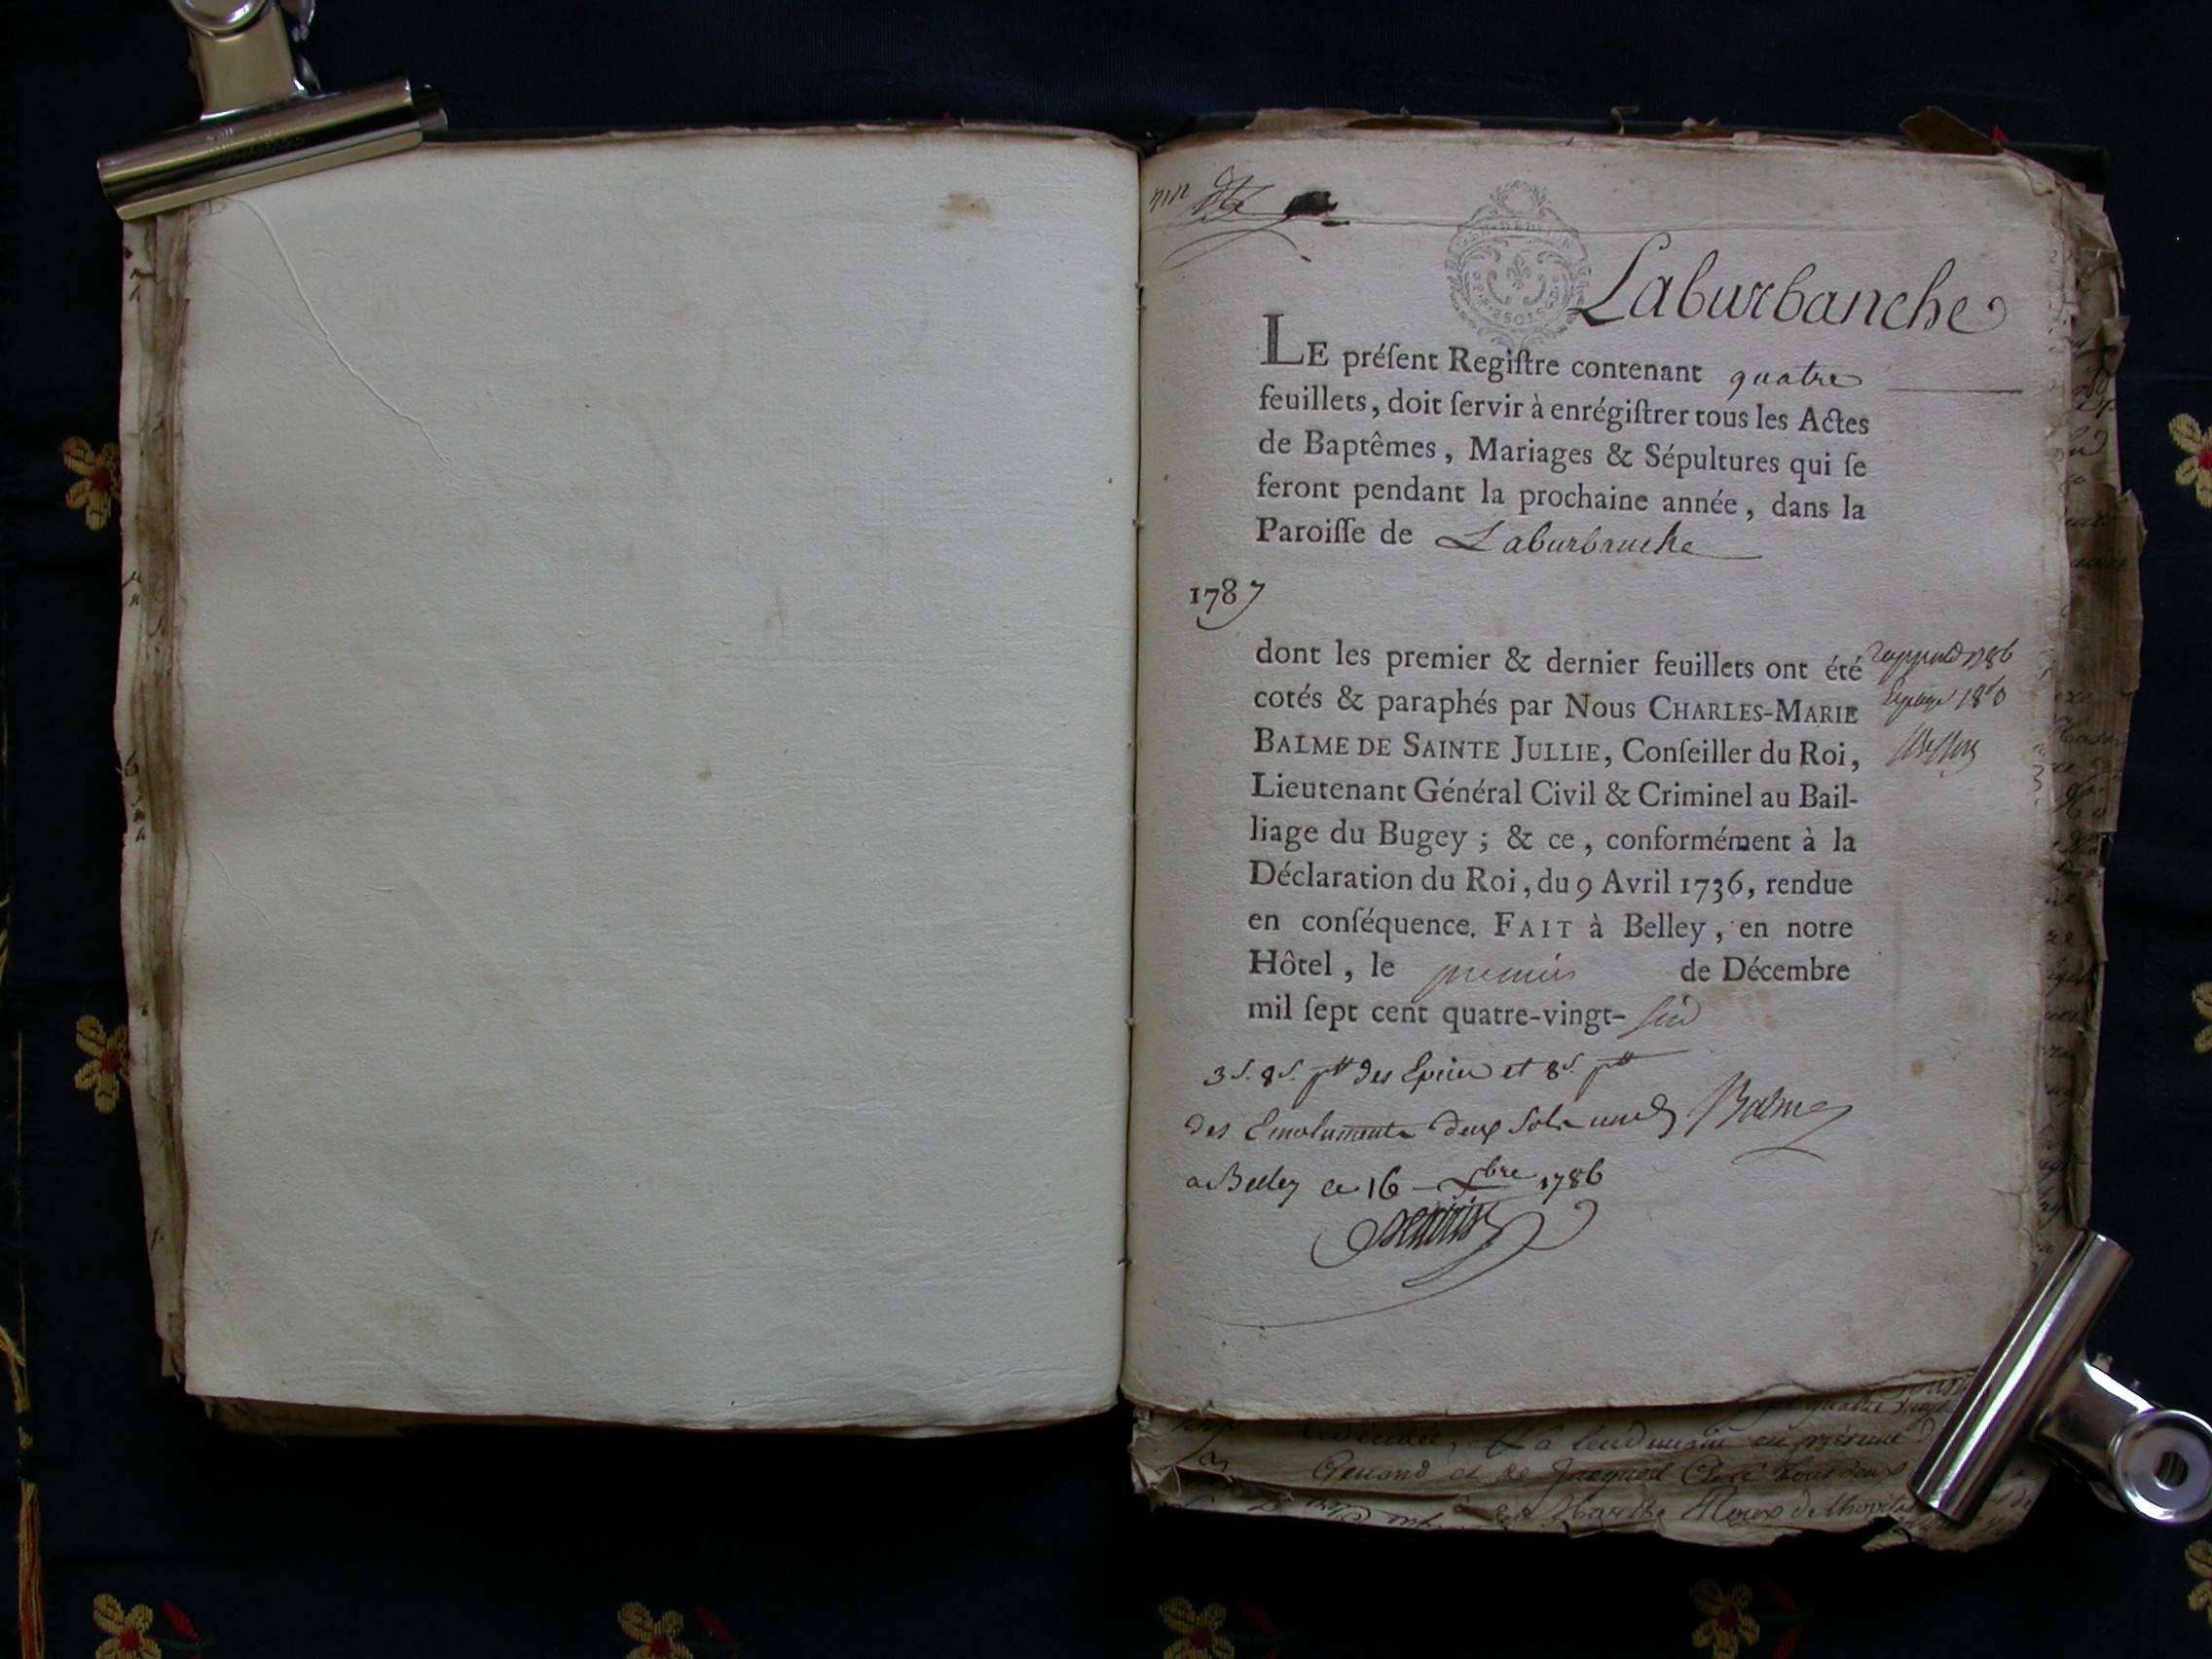 Laburbanche
LE préſent Regiſtre contenant quatre
feuillets, doit ſervir à enrégiſtrer tous les Actes
de Baptêmes, Mariages & Sépultures qui ſe
feront pendant la prochaine année, dans la
Paroiſſe de Laburbanche
1787
dont les premier & dernier feuillets ont été
cotés & paraphés par Nous CHARLES-MARIE
BALME DE SAINTE JULLIE, Conſeiller du Roi,
Lieutenant Général Civil & Criminel au Bail-
liage du Bugey ; & ce, conformément à la
Déclaration du Roi, du 9 Avril 1736, rendue
en conſéquence. FAIT à Belley, en notre
Hôtel, le premier de Décembre
mil ſept cent quatre-vingt-six
3s. 8s. ptt des Epices et 8s. ptt
des Emoluments deux Sols Balme
a Belley ce 16 bre 1786